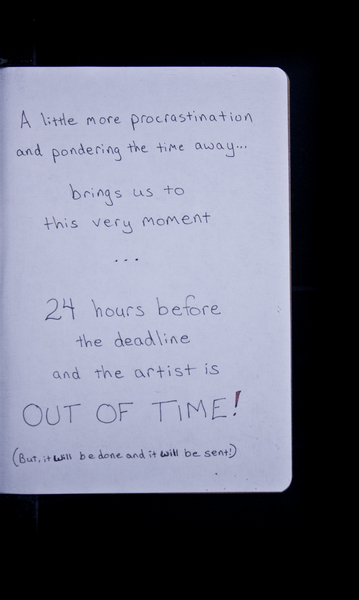 A little more procrastination
and pondering the time away...
brings us to
this very moment
...
24 hours before
the deadline
and the artist is
OUT OF TIME!
(But, it will be done and it will be sent!)